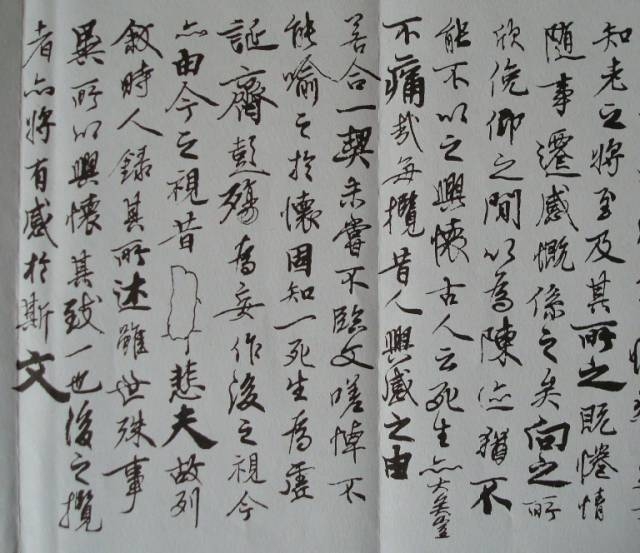 知老之將至及其所之既惓情
隨事遷感慨係之矣向之所
欣俛仰之間以為陳迹猶不
能不以之興懷古人云死生亦大矣豈
不痛哉每攬昔人興感之由
若合一契未嘗不臨文嗟悼不
能喻之於懷固知一死生為虛
誕齊彭殤為妄作後之視今
亦由今之視昔悲夫故列
敘時人錄其所述雖世殊事
異所以興懷其致一也後之攬
者亦將有感於斯文